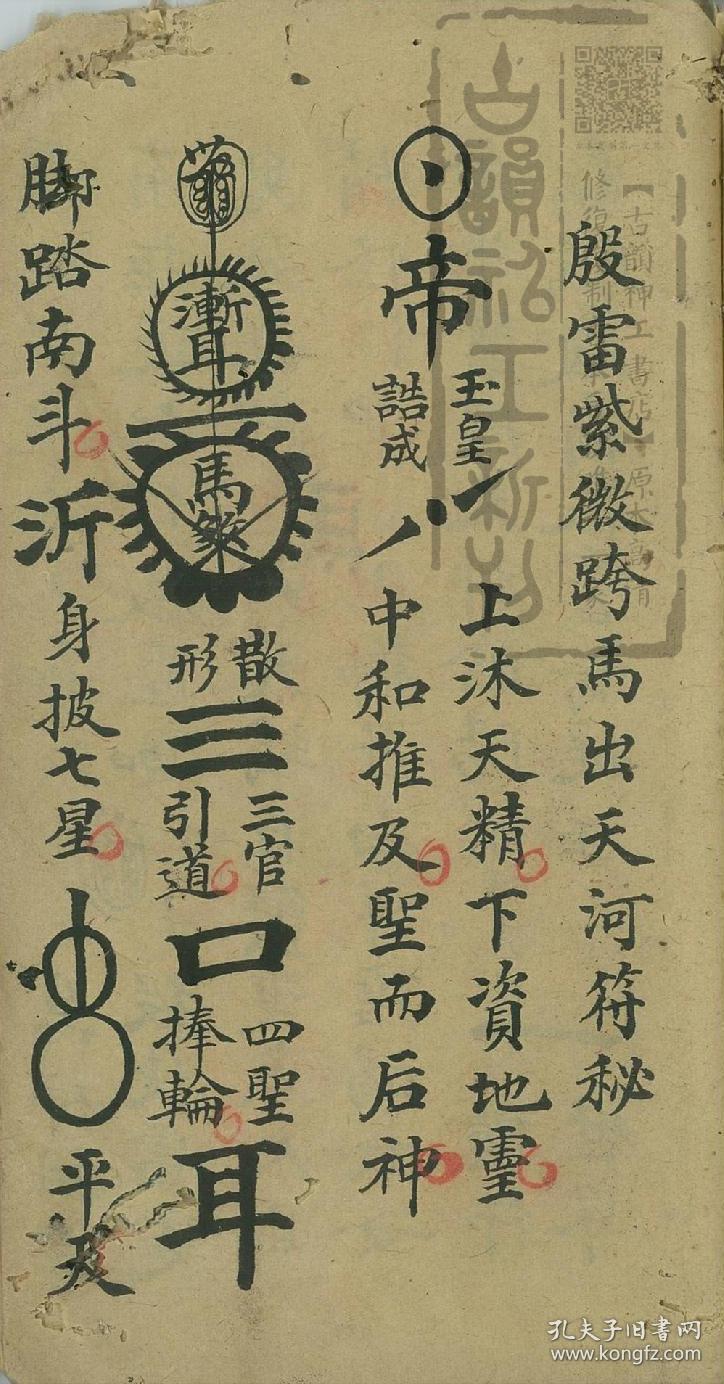 殷雷紫微跨馬出天河符秘
帝
玉皇
誥成
上沐天精下資地靈
八
中和推及聖而后神
漸耳
馬
散
形
三
三官
引道
口
四聖
捧輪
耳
脚踏南斗
沂
身披七星
平及
古韻神工書店
孔夫子旧书网
www.kongfz.com